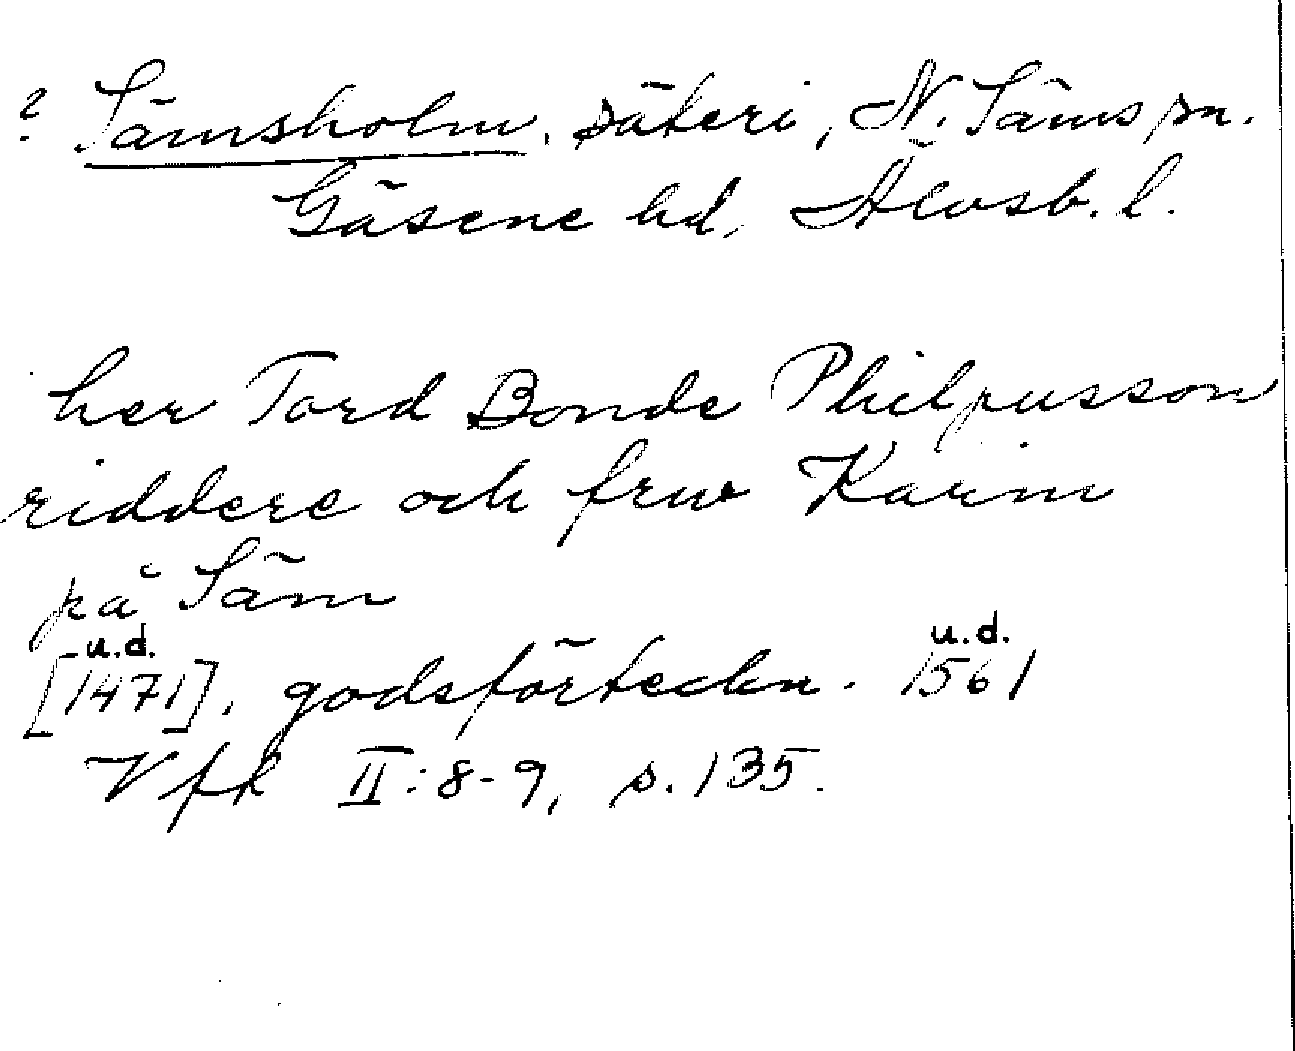 ? Sämsholm, säteri, N. Säms sn.
Gäsene hd, Älvsb. l.
her Tord Bonde Philpusson
riddere och frw Karin
på Säm
u.d. u.d.
[1471], godsförteckn. 1561
Vfk II:8-9, s.135.